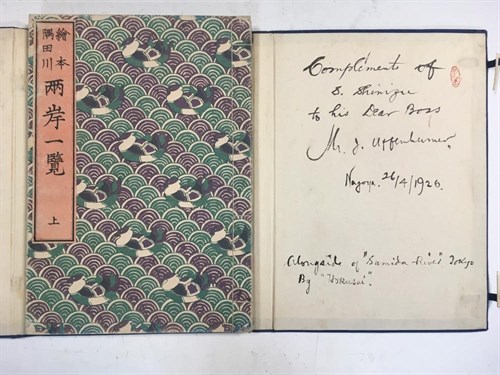 繪本
隅田川
兩岸一覽
上
Compliments of
S. Shimizu
to his Dear Boss
Mr. J. Uffenheimer,
Nagoya. 26/4/1926.
Alongside of "Sumida-River" Tokyo
By "Hokusai".